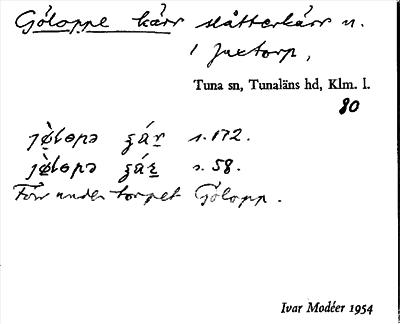 Göloppe kärr slåtterkärr n.
i Juxtorp,
Tuna sn, Tunaläns hd, Klm. l.
80
s. 172.
s. 58.
Förr under torpet Gölopp.
Ivar Modéer 1954